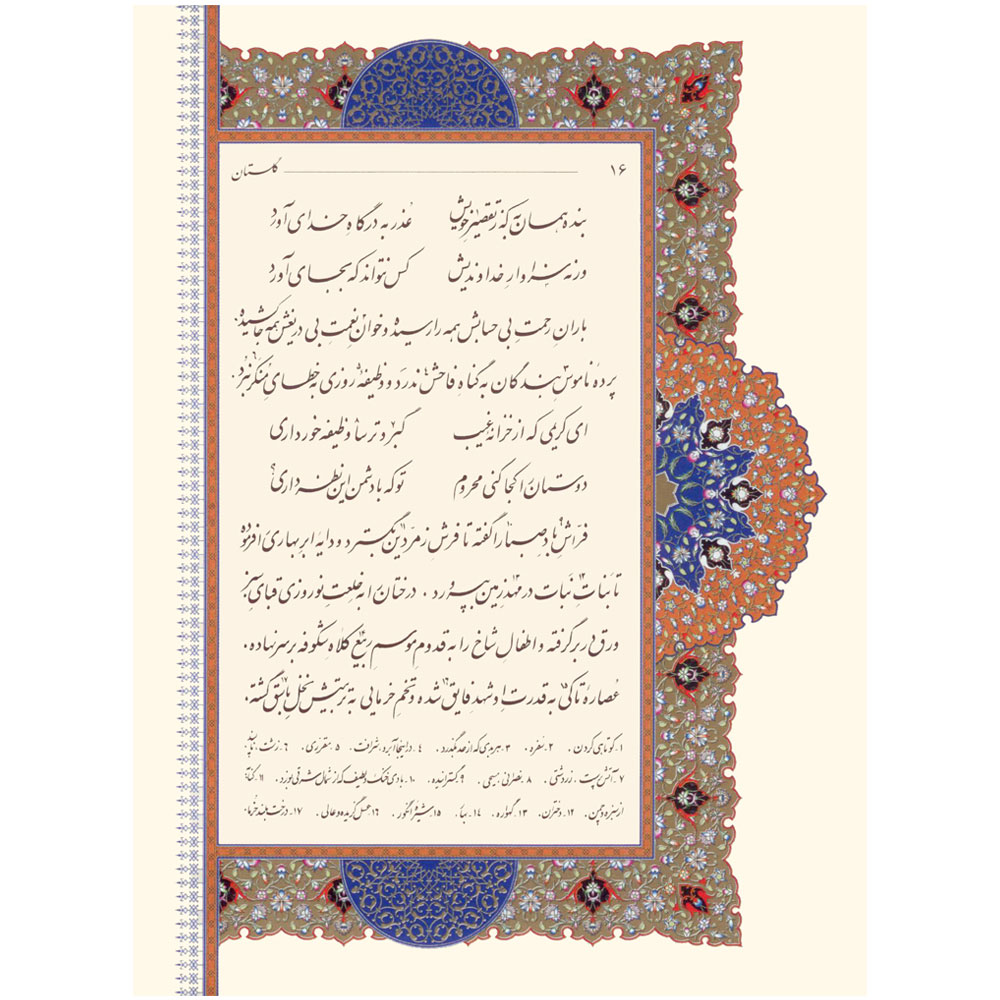 ۱۶ گلستان
بنده همان به که ز تقصیر۱ خویش عذر به درگاهِ خدای آورد
ورنه سزاوارِ خداوندیش کس نتواند که بجای آورد
بارانِ رحمتِ بی حسابش همه را رسیده و خوان۲ِ نعمتِ بی دریغش همه جا کشیده.
پردهٔ ناموس۴ِ بندگان به گناهِ فاحش۳ ندرد و وظیفهٔ۵ روزی به خطای مُنکَر۶ نبُرد
ای کریمی که از خزانهٔ غیب گبر۷ و ترسا۸ وظیفه خور داری
دوستان را کجا کنی محروم تو که با دشمن این نظر داری؟
فرّاش۹ِ بادِ صبا۱۰ را گفته تا فرش زمرّدین۱۱ بگسترد و دایهٔ ابرِ بهاری را فرموده
تا بنات۱۲ِ نَبات در مهد۱۳ِ زمین بپرورد. درختان را به خِلعتِ نوروزی قبای سبزِ
ورق در بر گرفته و اطفالِ شاخ را به قدومِ موسمِ ربیع۱۴ کلاهِ شکوفه بر سر نهاده.
عُصارهٔ تاکی۱۵ به قدرتِ او شهدِ فایق۱۶ شده و تخمِ خرمایی به تربیتش نخلِ باسق۱۷ گشته.
۱ـ کوتاهی کردن. ۲ـ سفره. ۳ـ هر بدی که از حد بگذرد. ۴ـ در اینجا آبرو، شرافت. ۵ـ مقرّری. ۶ـ زشت، ناپسند.
۷ـ آتش پرست، زردشتی. ۸ـ نصرانی، مسیحی. ۹ـ گستراننده. ۱۰ـ بادی خنک و لطیف که از شمال شرقی بوزد. ۱۱ـ کنایهٔ
از سبزه و چمن. ۱۲ـ دختران. ۱۳ـ گهواره. ۱۴ـ بهار. ۱۵ـ شیرهٔ انگور. ۱۶ـ عسل گزیده و عالی. ۱۷ـ درخت بلند خرما.